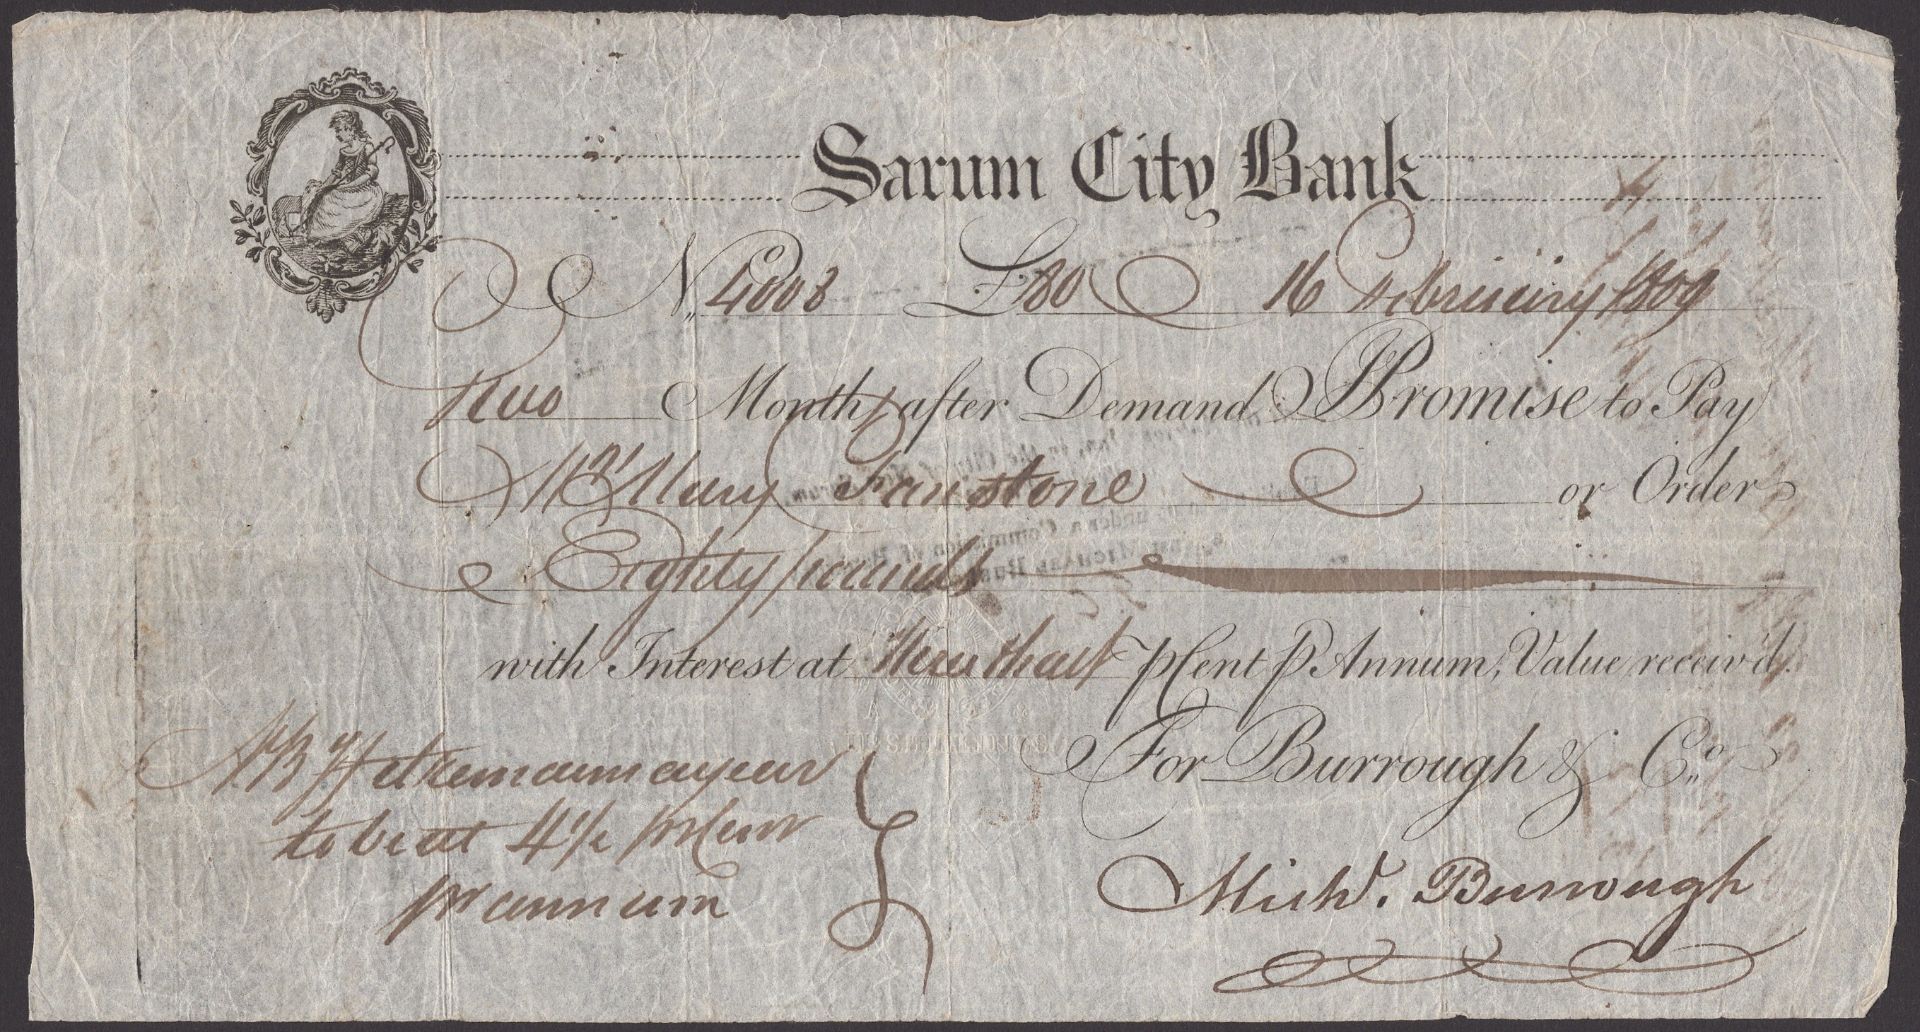 Sarum City Bank
No. 4008 £80 16 February 1809
Two Months after Demand I Promise to Pay
Mrs Mary Fanstone or Order
Eighty pounds
with Interest at three & half p Cent p Annum, Value receiv'd.
For Burrough & Co.
NB if it remain a year
to be at 4½ pr Cent
pr annum
Michl. Burrough